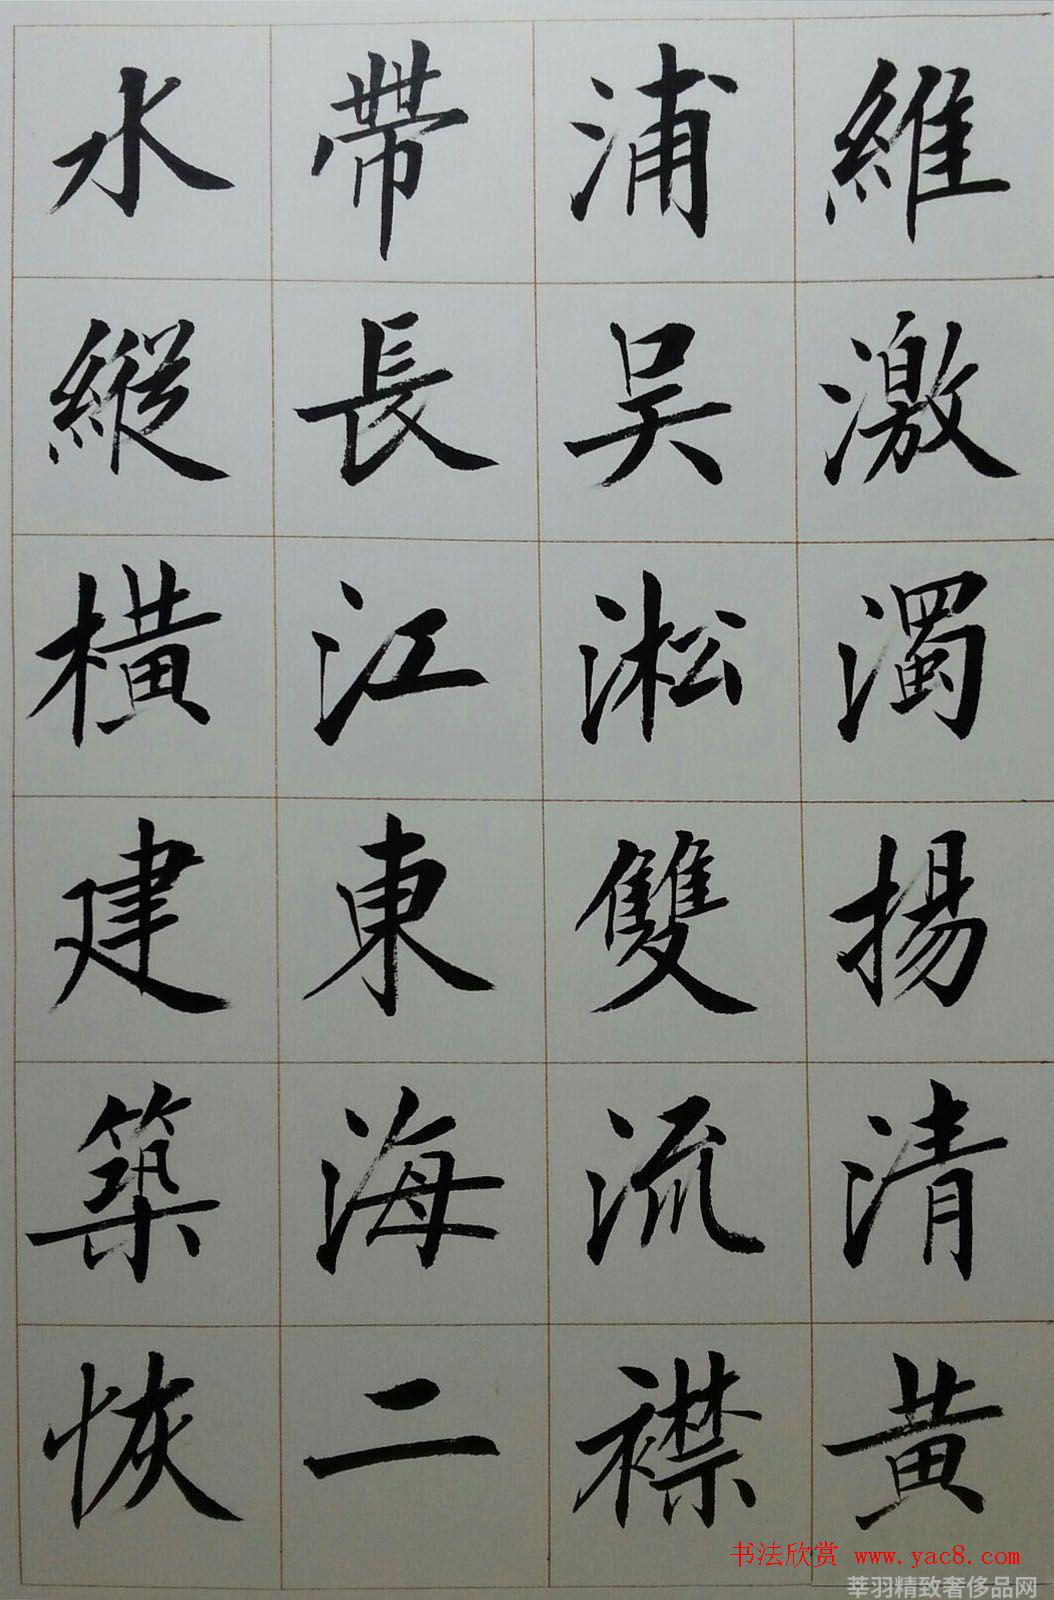 維激濁揚清黃
浦吴淞雙流襟
帶長江東海二
水縱橫建築恢
书法欣赏 www.yac8.com
莘羽精致奢侈品网